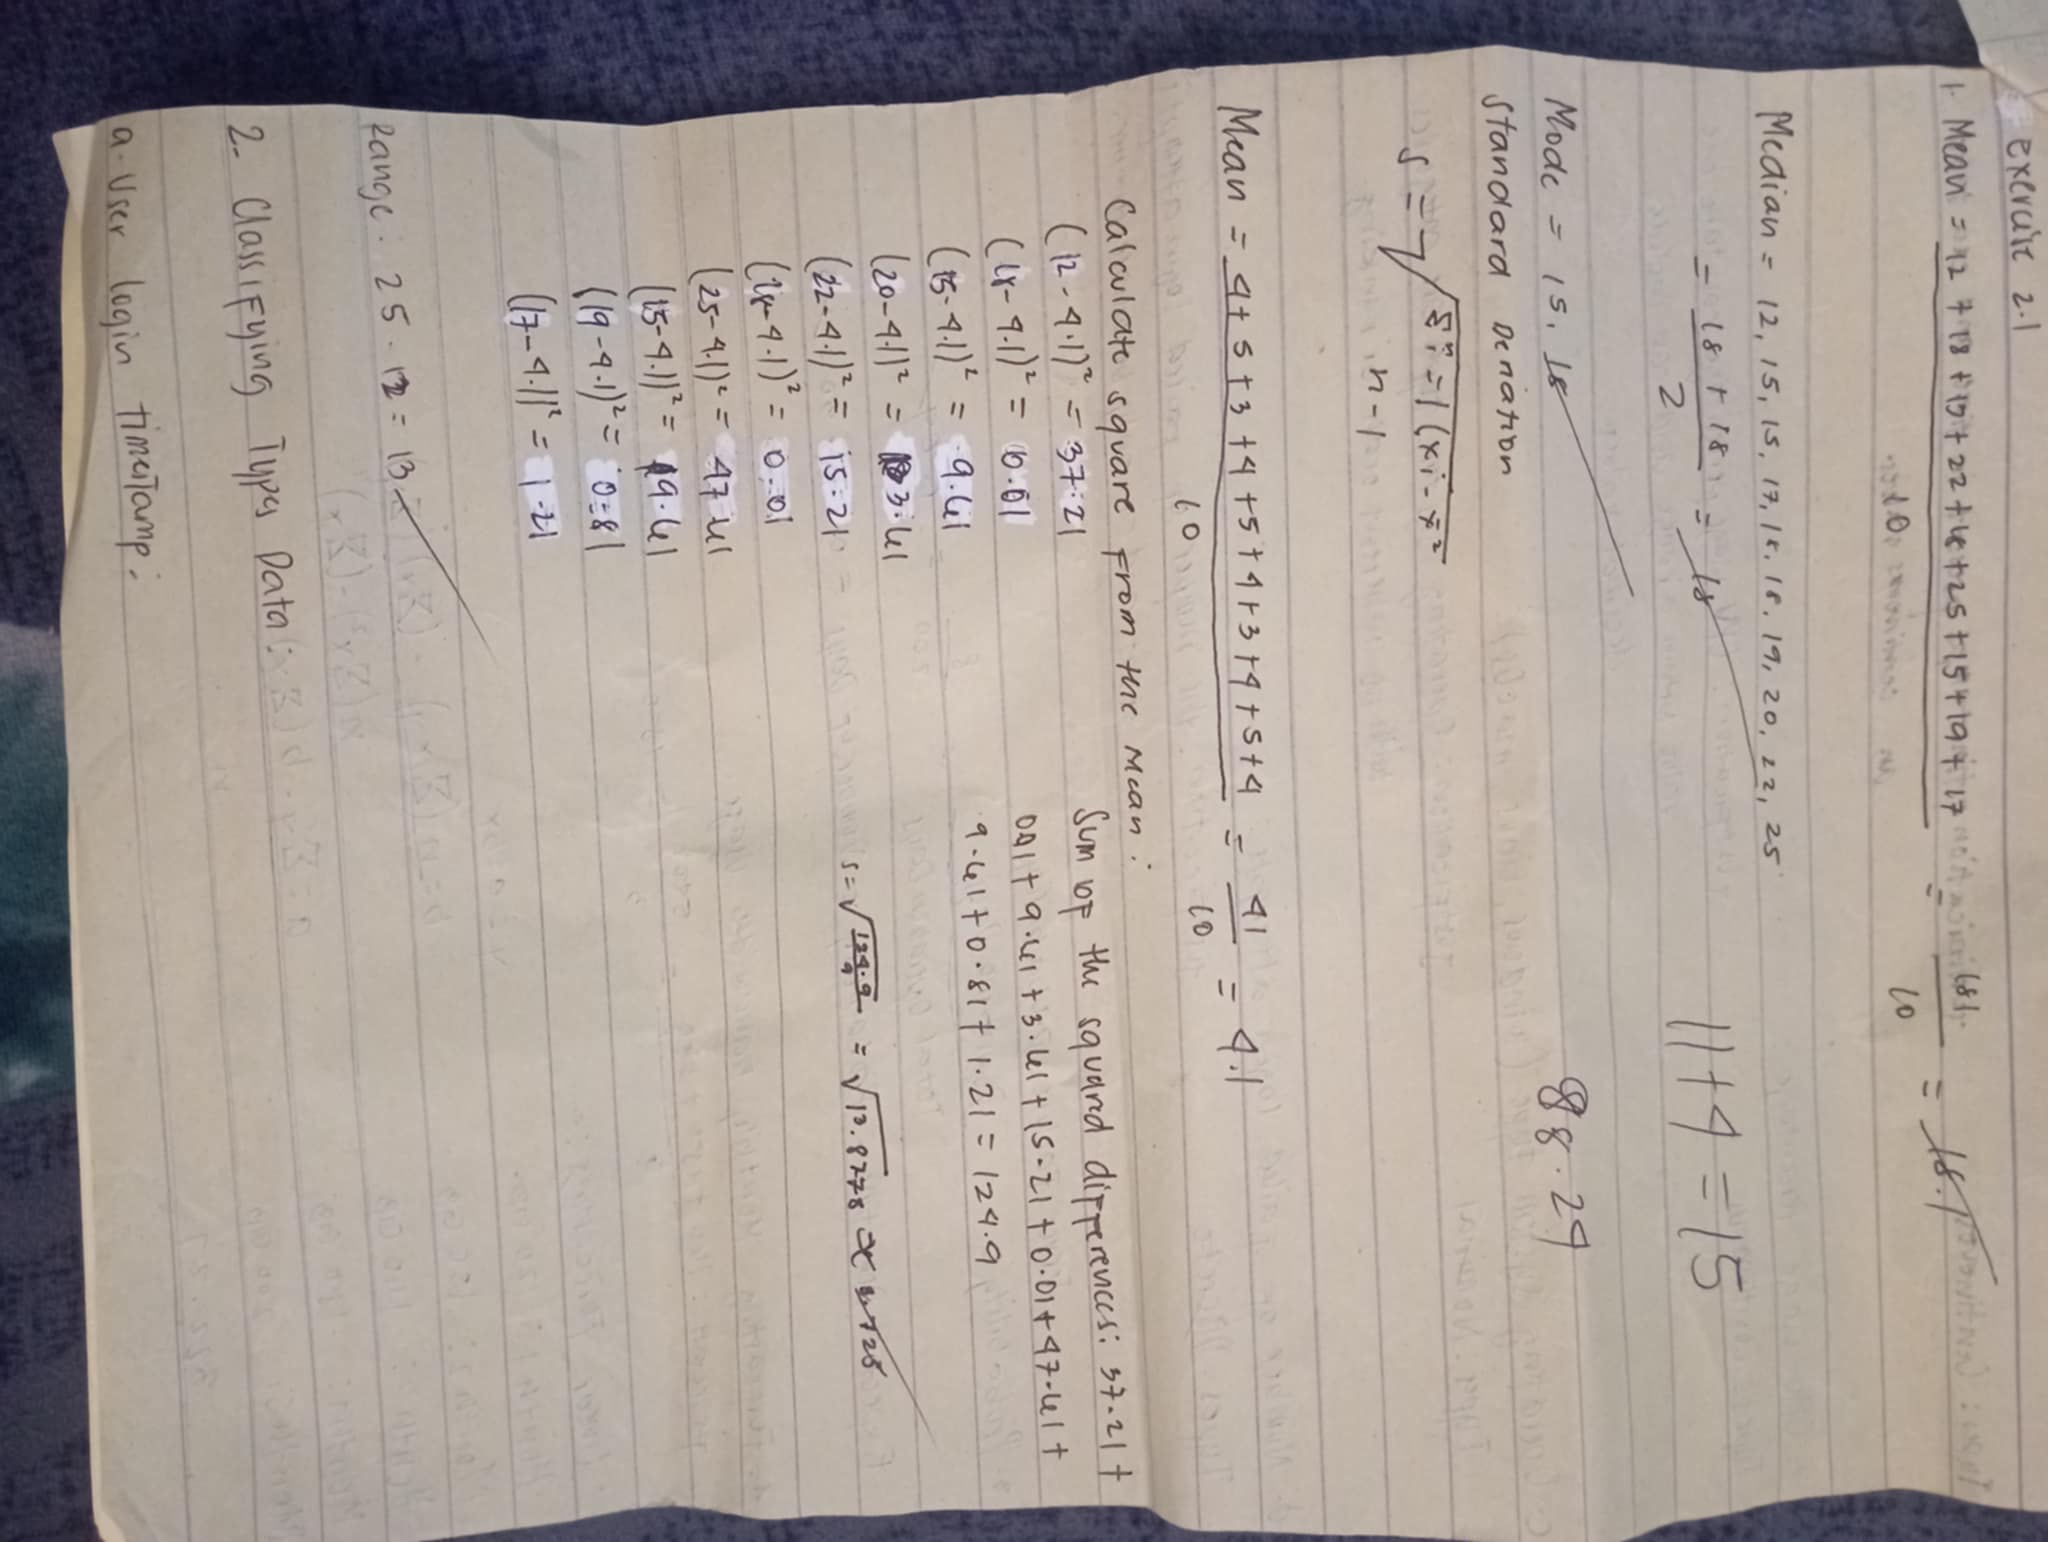 exercise 2.1
1. Mean = 12 + 18 + 15 + 22 + 18 + 25 + 15 + 19 + 17 = 181 = 18.1
10 10
Median = 12, 15, 15, 17, 18, 18, 19, 20, 22, 25
= 18 + 18 = 18
2
111+4=15
Mode = 15, 18
88.29
Standard Deviation
s = √Σⁿi=1(xi-x̄²
n-1
Mean = 4+5+3+4+5+4+3+4+5+4 = 41 = 4.1
10 10
Calculate square from the mean:
(12-4.1)² = 37.21
(18-4.1)² = 0.01
(15-4.1)² = 9.61
(20-4.1)² = 3.61
(22-4.1)² = 15.21
(18-4.1)² = 0.01
(25-4.1)² = 47.61
(15-4.1)² = 9.61
(19-4.1)² = 0.81
(17-4.1)² = 1.21
Sum of the squard differences: 37.21+
0.01+9.61+3.61+15.21+0.01+47.61+
9.61+0.81+1.21=124.9
s=√124.9 = √13.8778
9
Range: 25-12=13
2- Classifying Types Data:
a. User login timestamp: